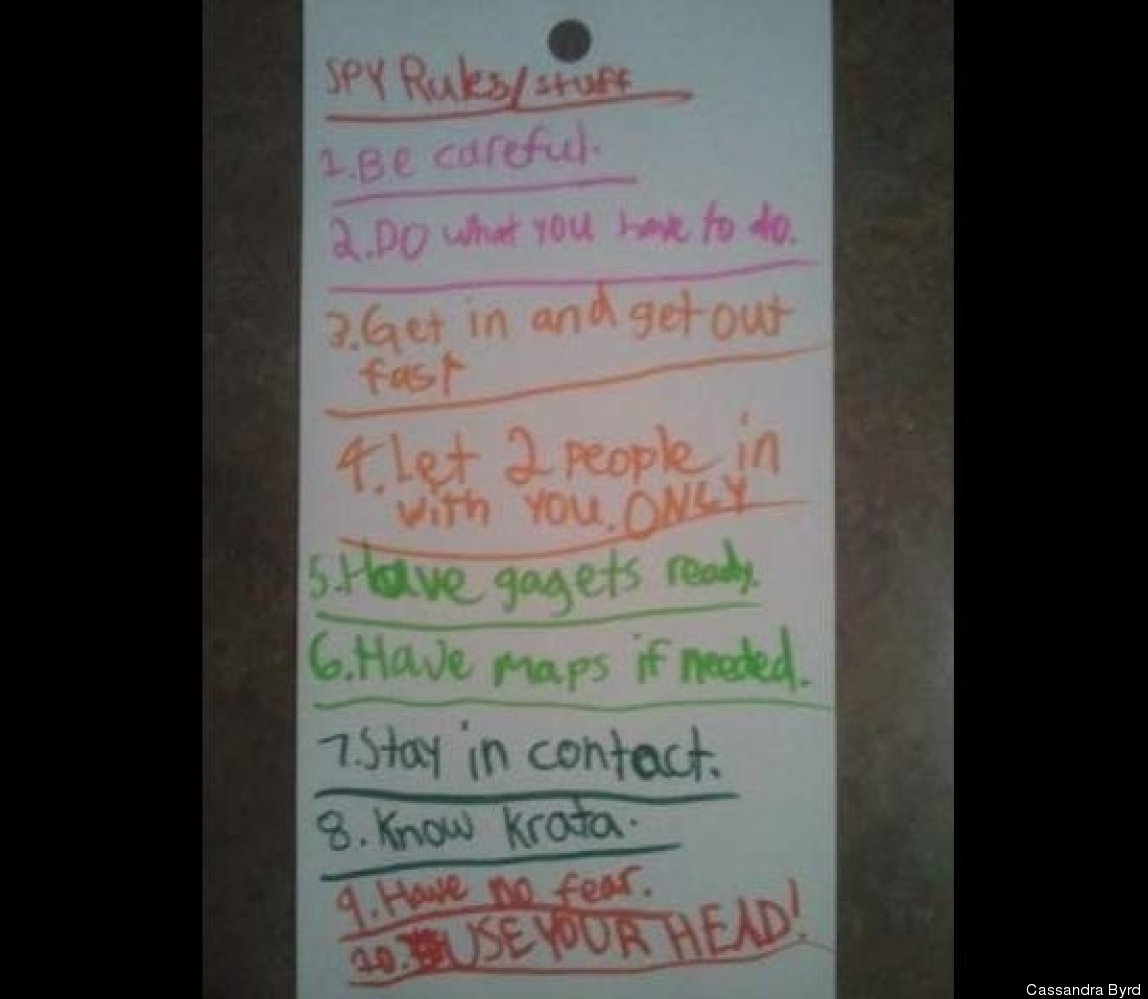 SPY Rules/stuff
1.Be careful.
2.DO what you have to do.
3.Get in and get out
fast
4.Let 2 people in
with you. ONLY
5.Have gagets ready.
6.Have maps if needed.
7.Stay in contact.
8.Know krata.
9.Have no fear.
10.USE YOUR HEAD!
Cassandra Byrd